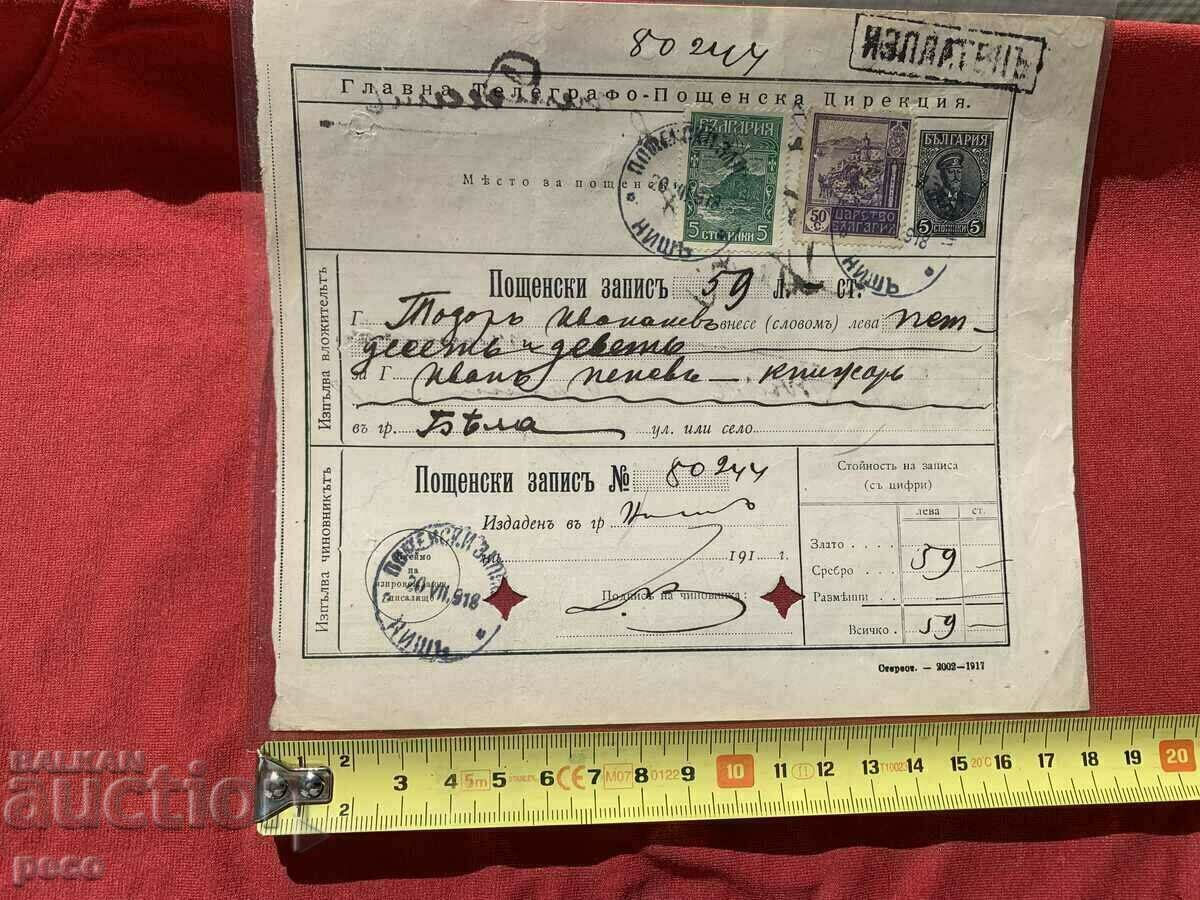 80244
ИЗПЛАТЕНЪ
Главна Телеграфо-Пощенска Дирекция.
Мѣсто за пощен
БЪЛГАРИЯ
5 СТОТИНКИ 5
50 С.
ЦАРСТВО
БЪЛГАРИЯ
БЪЛГАРИЯ
5 СТОТИНКИ 5
20 VII. 918
НИШЪ
918
НИШЪ
Изпълва вложительтъ
Пощенски записъ 59 л. — ст.
Г. Тодоръ внесе (словомъ) лева пет-
десеть и деветь
за Г Иванъ Пеневъ — книжарь
въ гр. Бѣла ул. или село
Изпълва чиновникътъ
Пощенски записъ № 80244
Издаденъ въ гр Нишъ
на 191 г.
Клеймо
на
изпроводящия
писалище
20 VII. 918
НИШЪ
Подпись на чиновника:
Стойность на записа
(съ цифри)
лева ст.
Злато:
Сребро 59 —
Размѣнни
Всичко 59 —
Стереот. — 2002—1917
BALKAN
auctio
peco
1 2 3 4 5m 5 6 CE 7 M07 8 0122 9 10 11 II 12 13 T10023 14 15 20°C 16 17 18 19 20
2